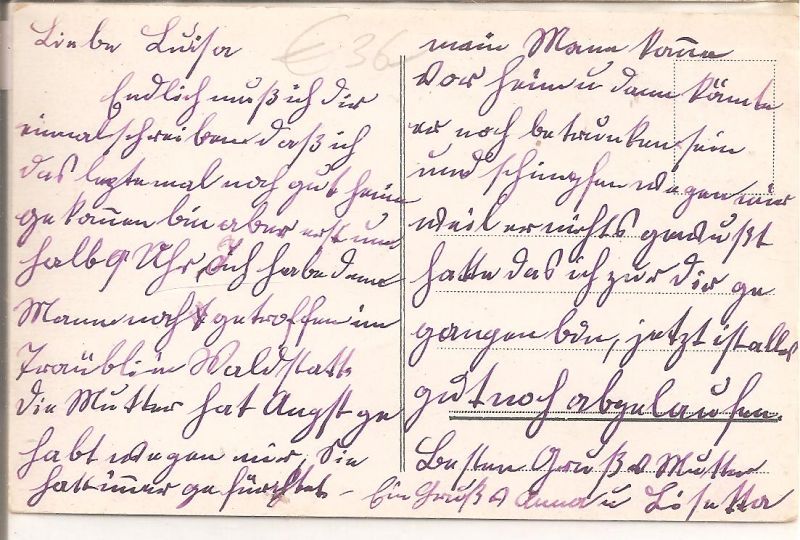 Liebe Luisa
€ 36
Endlich muß ich dir
einmal schreiben daß ich
das leztemal noch gut heim
gekom̅en bin aber erst um
halb 9 Uhr, Ich habe den
Mann noch getroffen im
Träubli in Waldstatt
die Mutter hat Angst ge
habt wegen mir, Sie
hat im̅er gefürchtet
mein Mann kom̅e
vor heim u dann könnte
er noch betrunken sein
und schimpfen wegen mir
weil er nichts gewußt
hatte das ich zur dir ge
gangen bin, jetzt ist alles
gut noch abgelaufen.
Besten Gruß v Mutter
Ein Gruß v Anna u Lisetta